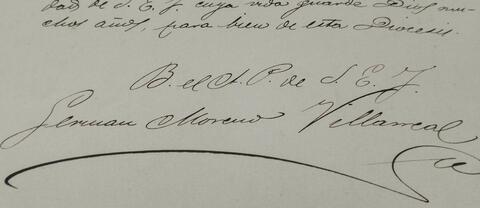 dad de S. E. J. cuya vida guarde Dios mu-
chos años, para bien de esta Diocesis.
B. el A. P. de S. E. J.
German Moreno Villarreal